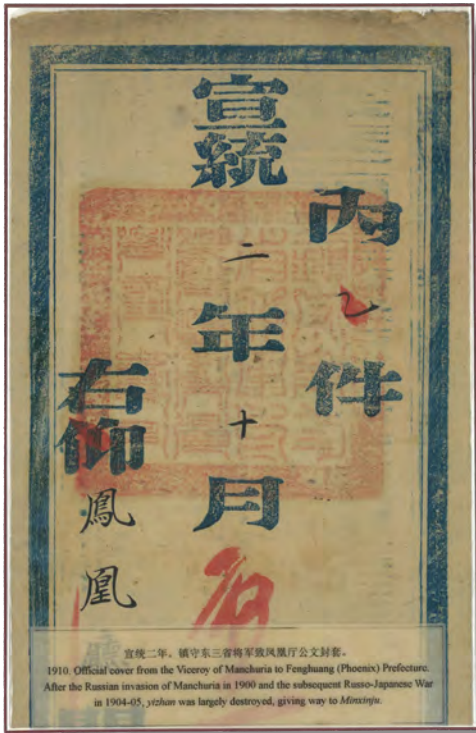 丙乙件
宣統二年十月
右仰鳳凰
宣统二年。镇守东三省将军致凤凰厅公文封套。
1910. Official cover from the Viceroy of Manchuria to Fenghuang (Phoenix) Prefecture.
After the Russian invasion of Manchuria in 1900 and the subsequent Russo-Japanese War
in 1904-05, yizhan was largely destroyed, giving way to Minxinju.